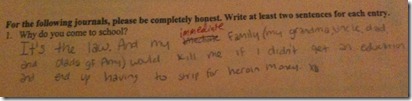 For the following journals, please be completely honest. Write at least two sentences for each entry.
1. Why do you come to school?
immediate
It's the law. And my family (my grandma, uncle, dad,
and dads gf Amy) would kill me if I didn't get an education
and end up having to strip for heroin money.